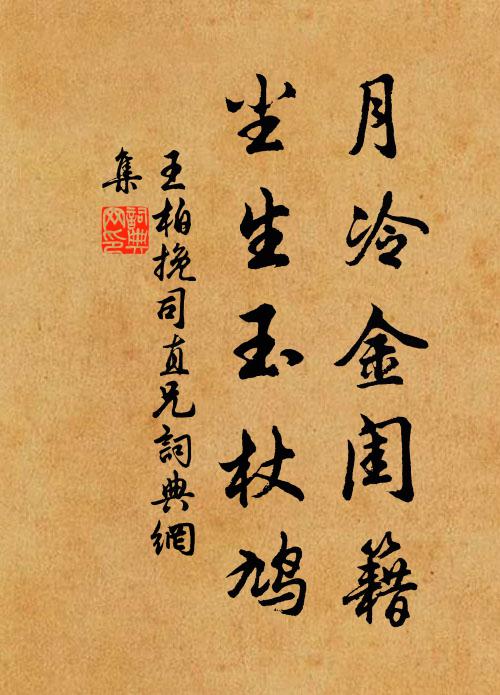 月冷金闺籍
尘生玉杖鸠
王柏挽司直兄詞典網
集
詞典网印